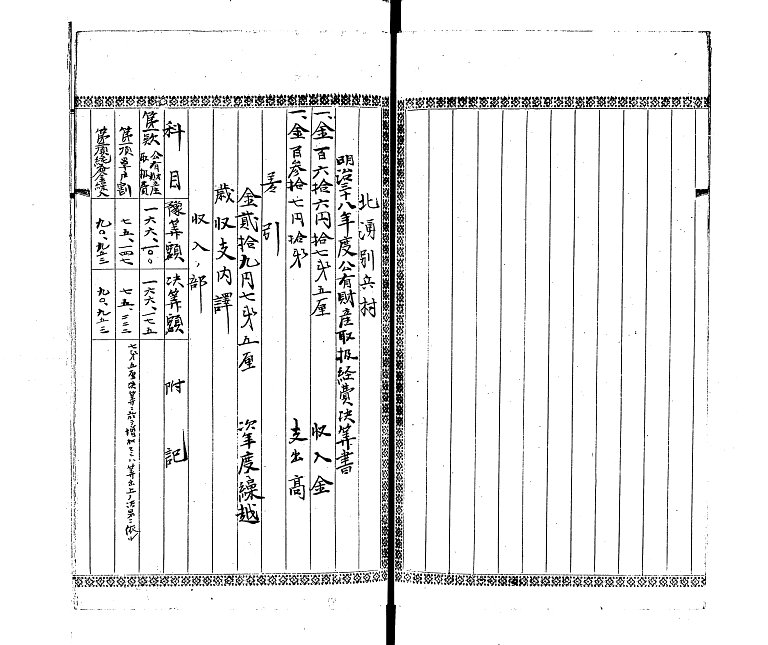 北湧別兵村
明治三十八年度公有財産取扱経費決算書
一、金百六拾六円拾七銭五厘 収入金
一、金百参拾七円拾銭 支出高
差引
金貳拾九円七銭五厘 次年度繰越
歳収支内譯
収入ノ部
科目 豫算額 决算額 附記
第一款 公有財産取扱費 一六六、一〇〇 一六六、一七五
第一項 戸割 七五、一四七 七五、二二二 七銭五厘决算ニ於テ増加セシハ算出上ノ結果ニ依ル
九〇、九五三 九〇、九五三